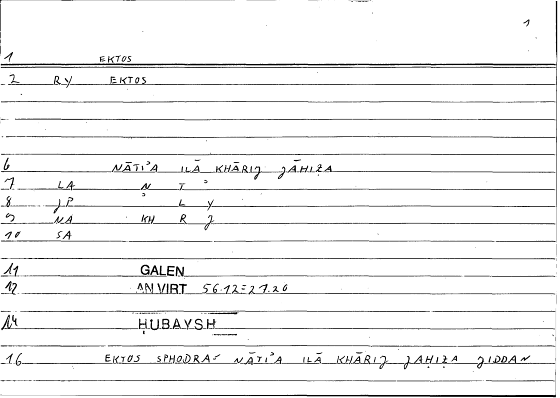 1
1 EKTOS
2 RY EKTOS
6 NĀTIʾA ILĀ KHĀRIJ JĀḤIẒA
7 LA N T ʾ
8 JP L Y
9 NA KH R J
10 SA
11 GALEN
12 AN VIRT 56.12=21.20
14 ḤUBAYSH
16 EKTOS SPHODRA= NĀTIʾA ILĀ KHĀRIJ JAḤIẒA JIDDAN